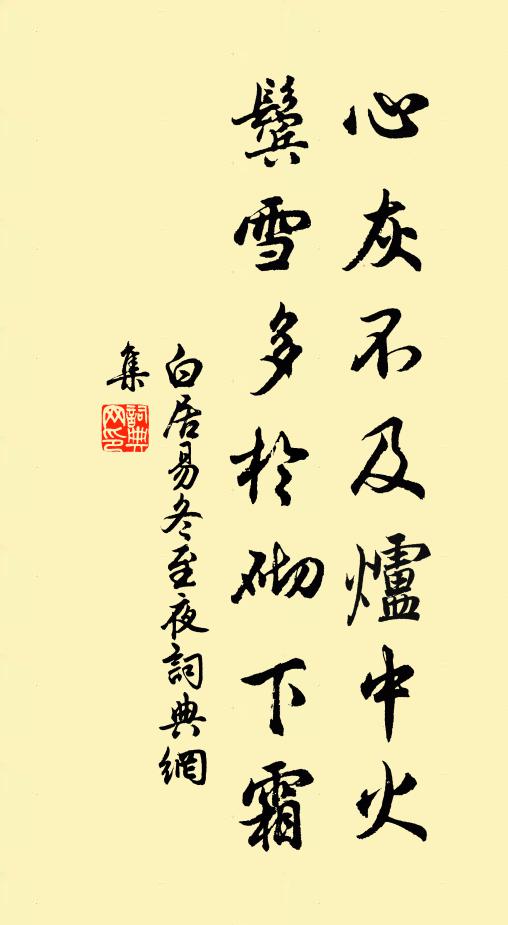 心灰不及爐中火
鬢雪多於砌下霜
白居易冬至夜詞典網
集
詞典網印